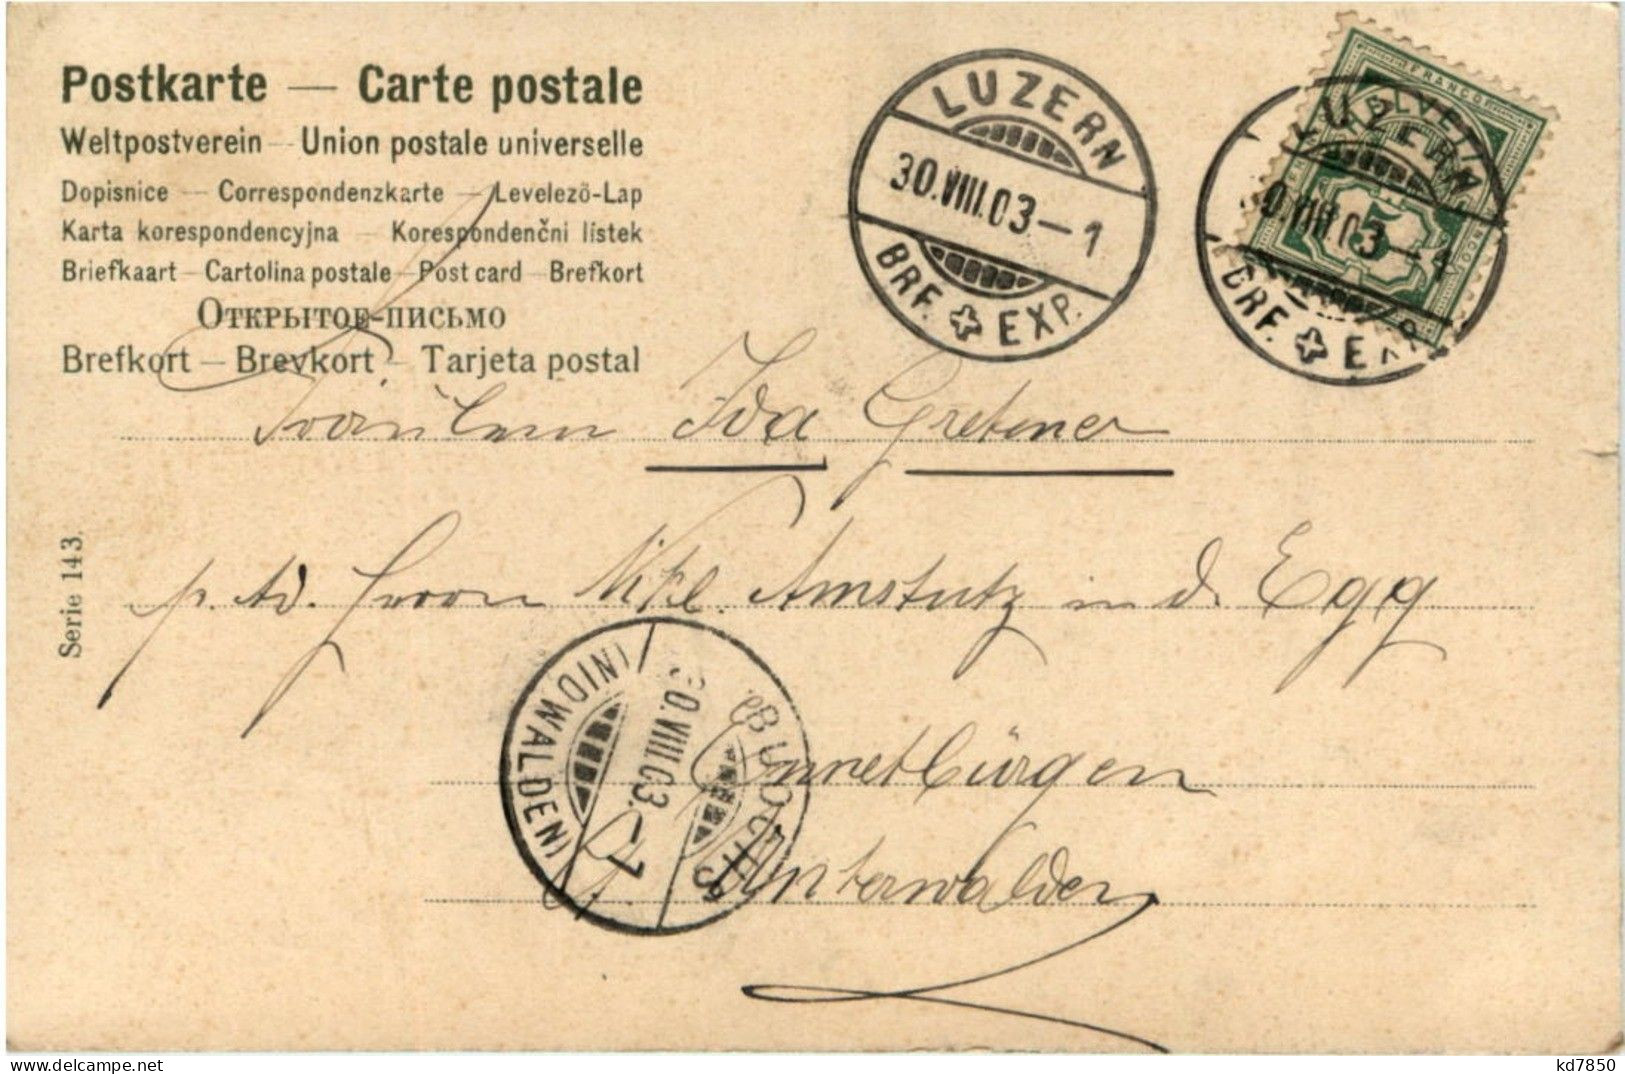 Postkarte — Carte postale
Weltpostverein — Union postale universelle
Dopisnice — Correspondenzkarte — Levelező-Lap
Karta korespondencyjna — Korespondenčni listek
Briefkaart — Cartolina postale — Post card — Brefkort
Открытое-письмо
Brefkort — Brevkort — Tarjeta postal
LUZERN
30.VIII.03—1
BRF. EXP.
FRANCO
HELVETIA
5
FRANCO
LUZERN
0.VIII.03—1
BRF. EXP.
Fräulein Ida Gretener
Serie 143.
p. Ad. Herrn Nikl. Amstutz in d. Egg
BUOCHS
30.VIII.03.–1
(NIDWALDEN)
Ennetbürgen
Unterwalden
kd7850